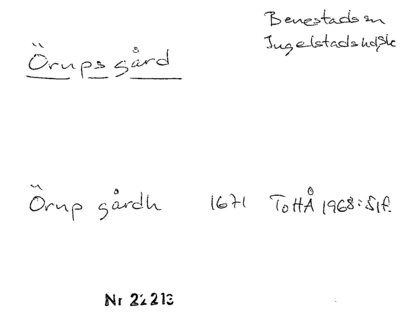 Benestads sn
Ingelstads hd Sk
Örups gård
Örup gårdh 1671 ToHÅ 1968: 51f.
Nr 22213